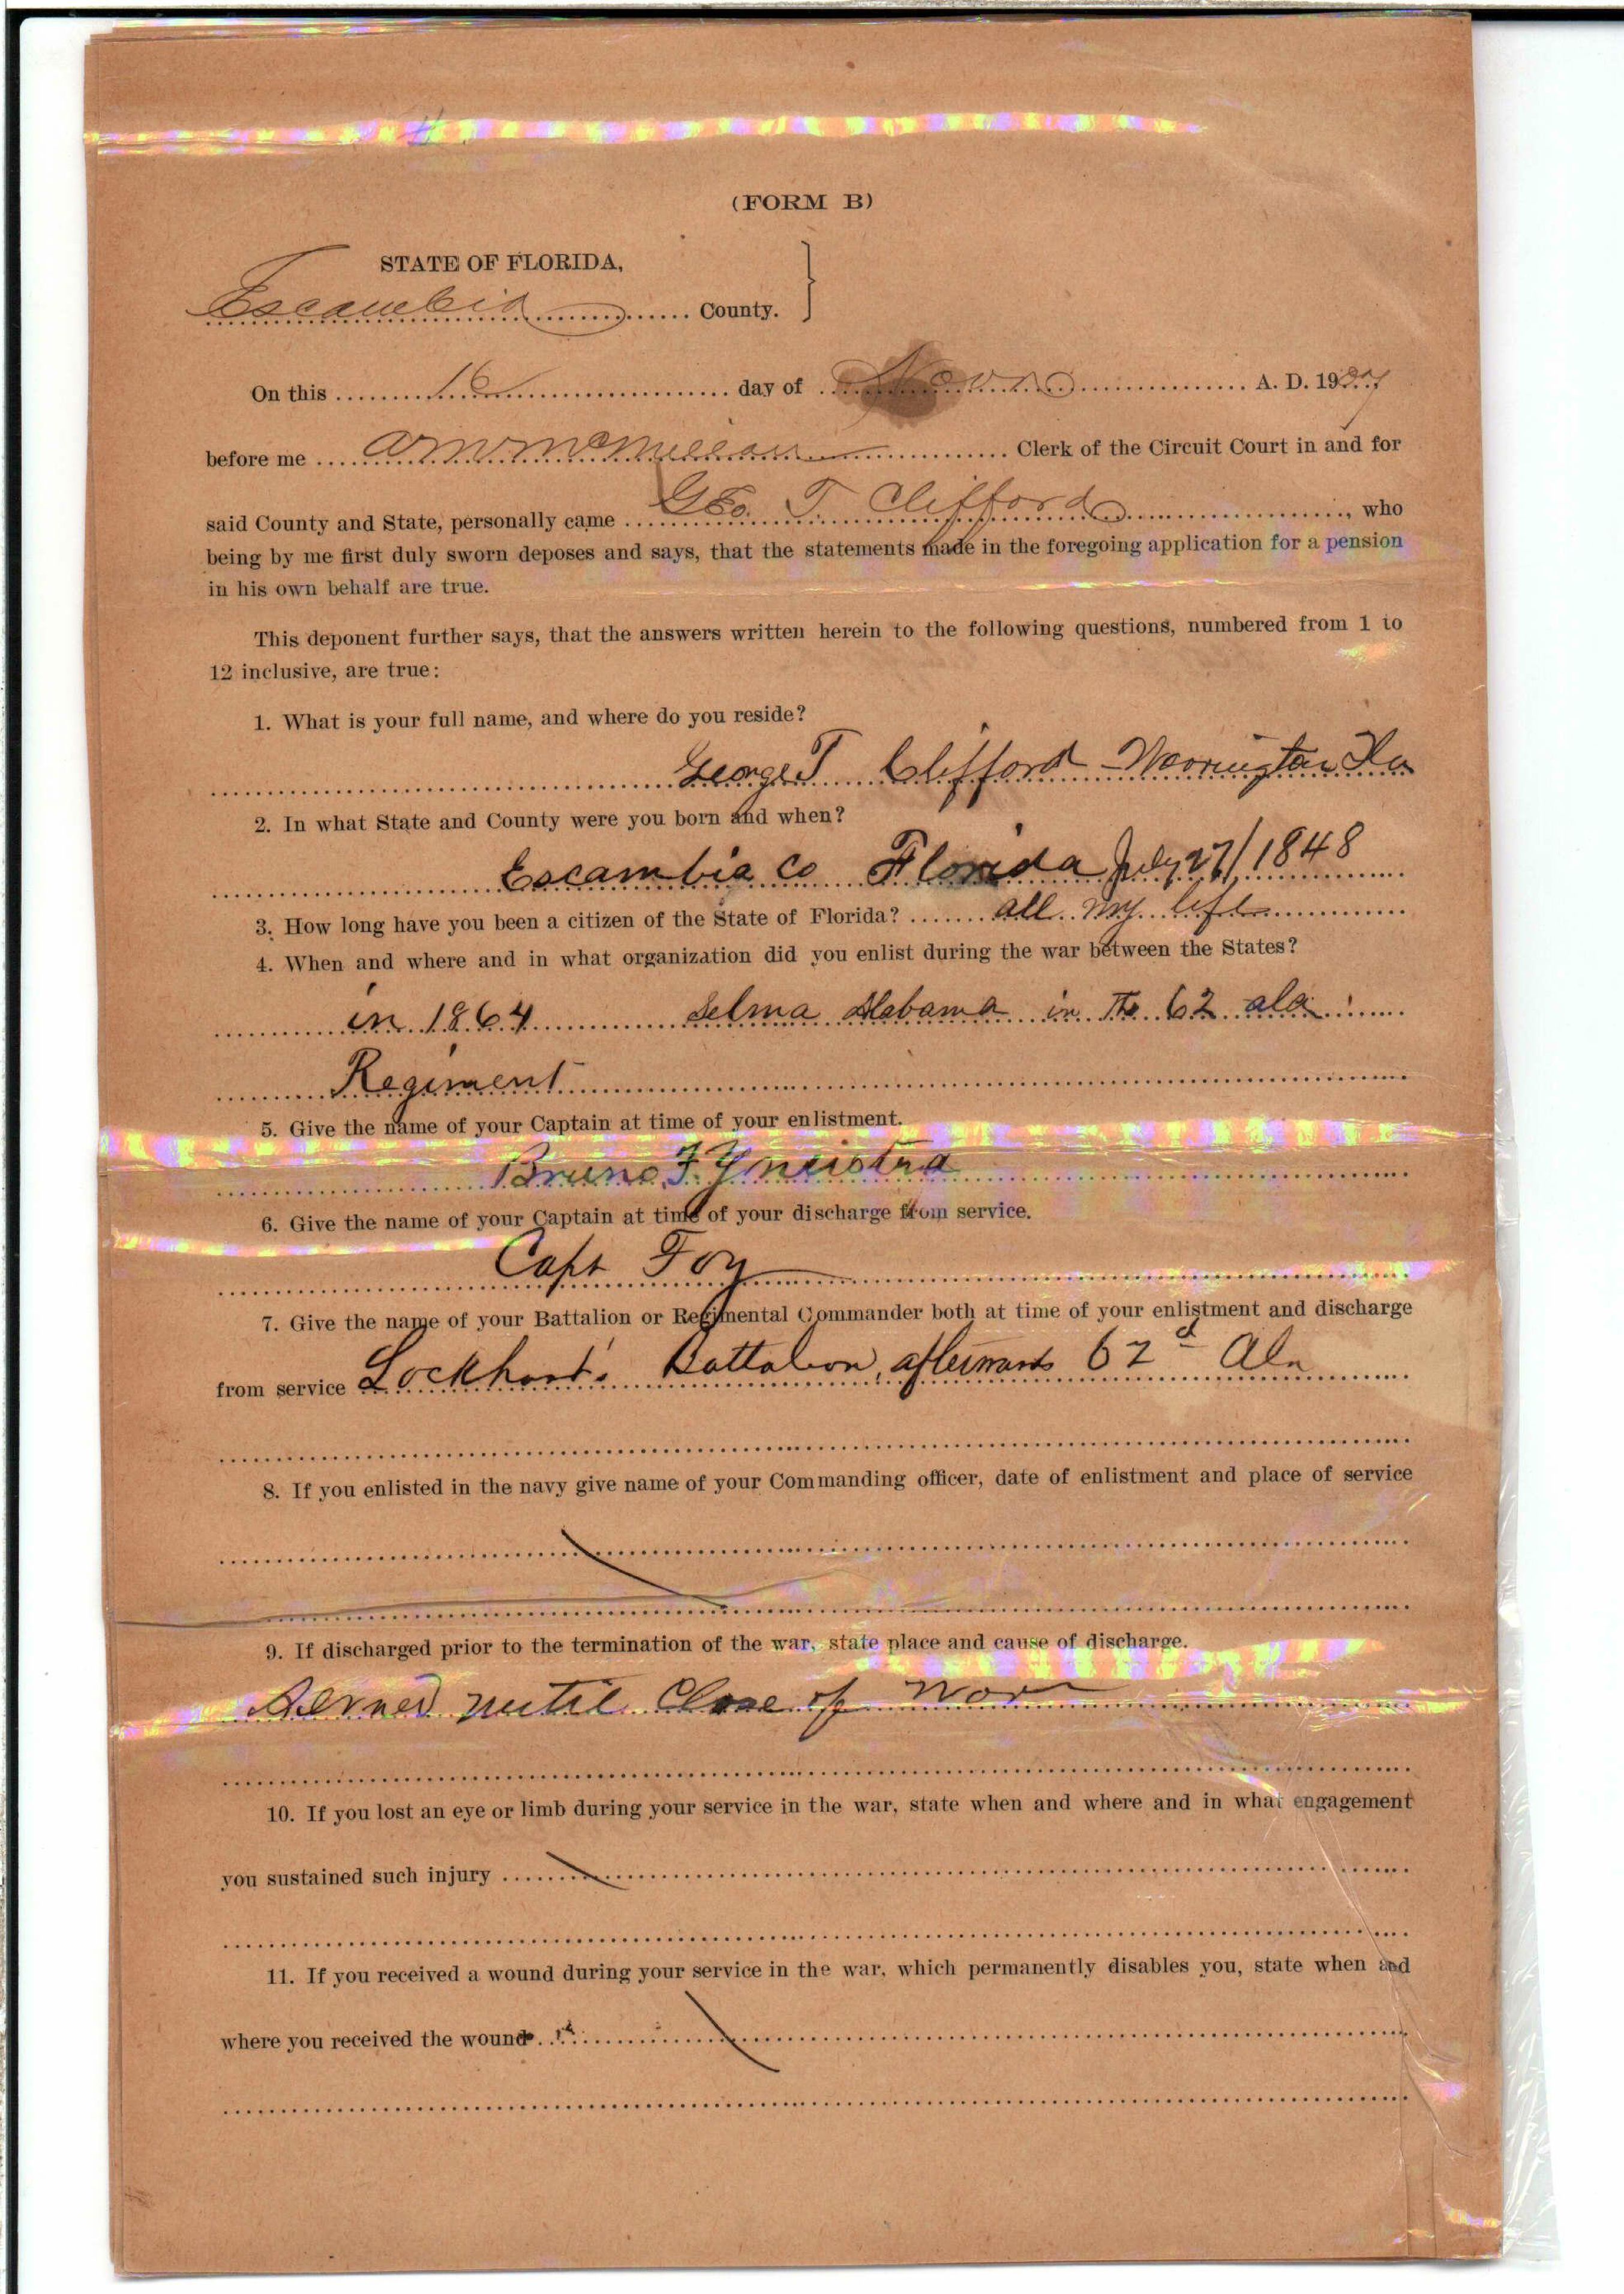 (FORM B)
STATE OF FLORIDA,
Escambia County.
On this 16 day of Nov A. D. 1907
before me A M McMillan Clerk of the Circuit Court in and for
said County and State, personally came Geo. T. Clifford, who
being by me first duly sworn deposes and says, that the statements made in the foregoing application for a pension
in his own behalf are true.
This deponent further says, that the answers written herein to the following questions, numbered from 1 to
12 inclusive, are true:
1. What is your full name, and where do you reside?
George T Clifford Warrington Fla
2. In what State and County were you born and when?
Escambia Co Florida July 27/1848
3. How long have you been a citizen of the State of Florida? all my life
4. When and where and in what organization did you enlist during the war between the States?
in 1864 Selma Alabama in The 62 ala
Regiment
5. Give the name of your Captain at time of your enlistment.
Bruno F Yneistra
6. Give the name of your Captain at time of your discharge from service.
Capt Foy
7. Give the name of your Battalion or Regimental Commander both at time of your enlistment and discharge
from service Lockhart's Battalion, afterwards 62d Ala
8. If you enlisted in the navy give name of your Commanding officer, date of enlistment and place of service
9. If discharged prior to the termination of the war, state place and cause of discharge.
Served until Close of War
10. If you lost an eye or limb during your service in the war, state when and where and in what engagement
you sustained such injury
11. If you received a wound during your service in the war, which permanently disables you, state when and
where you received the wound